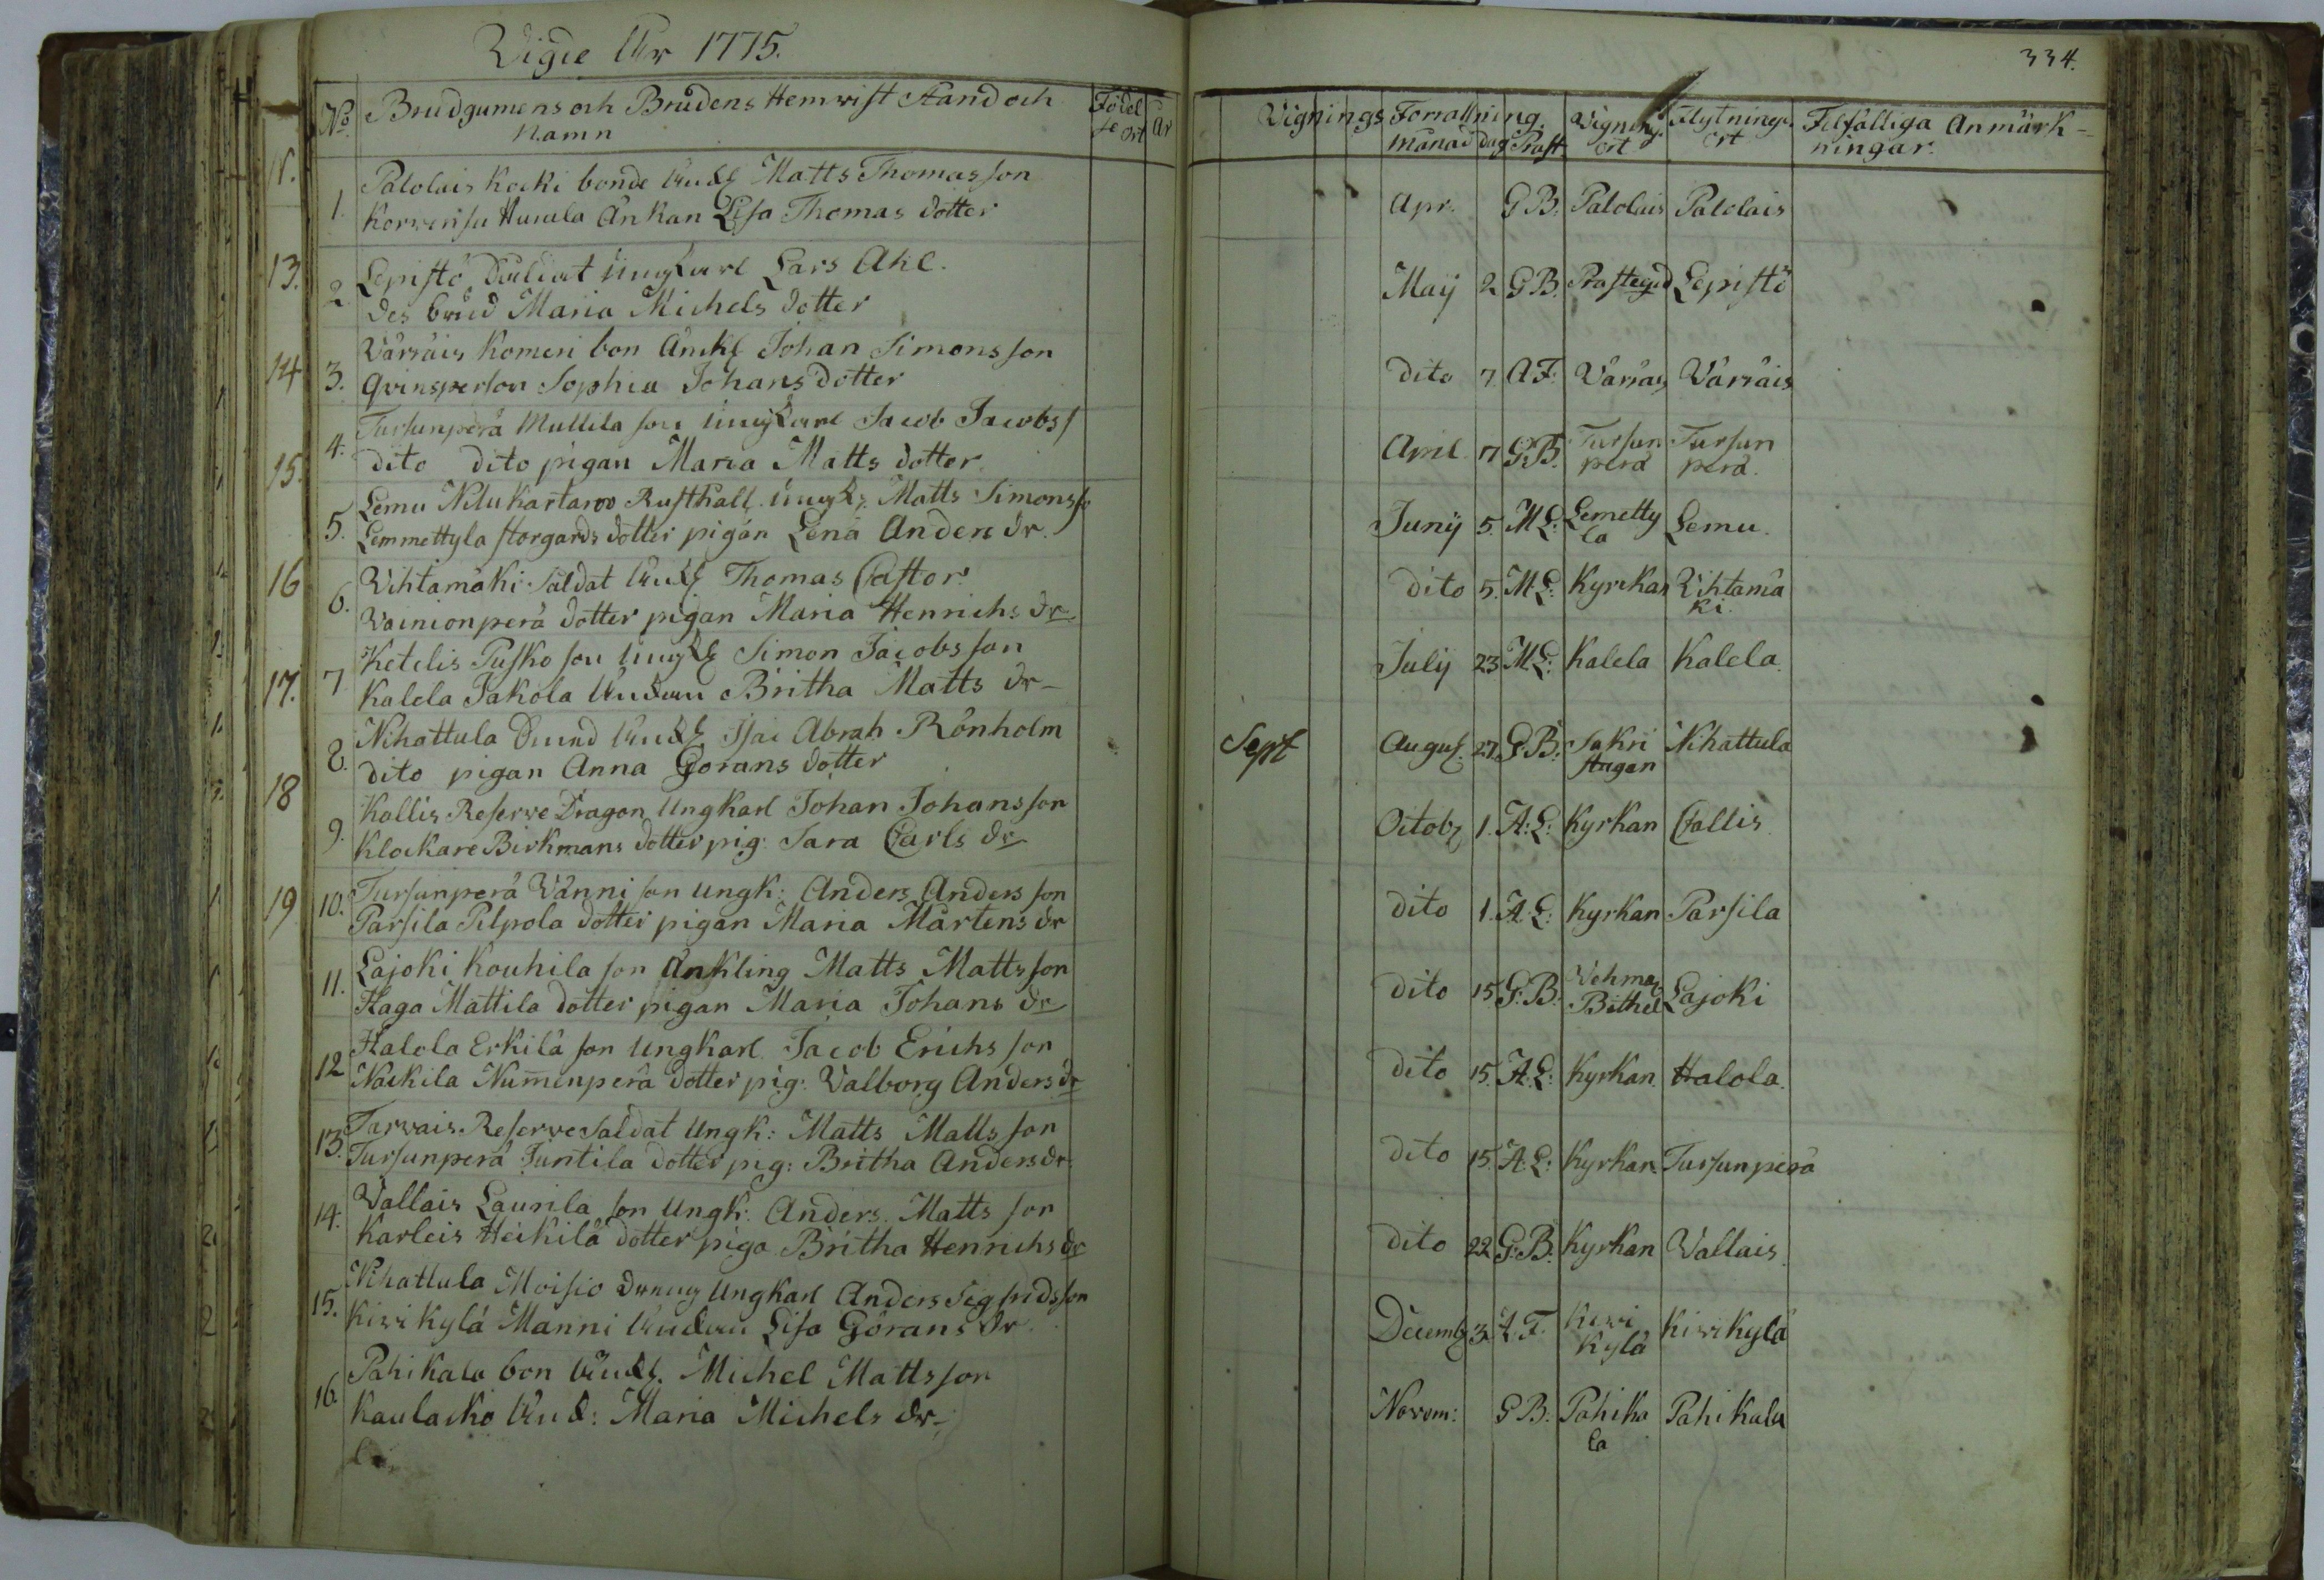 Vigde År 1775.
334.
No Brudgumens och Brudens Hemvist Stand och Namn Födelse ort År
Vignings Forrattning. månad dag Prast. Vignings ort Flytnings ort Tilfälliga Anmärkningar.
1. Palolais Kocki bonde Änkl Matts Thomasson
Korvensu Huuula Änkan Lisa Thomas dotter
Apr. G.B. Palolais Palolais
2. Lepistö Soldat Ungkarl Lars Ahl.
des brud Maria Michels dotter
Maij 2 G.B. Prastegd Lepistö
3. Värräis Komeri bon Änkl Johan Simonsson
Qvinsperson Sophia Johans dotter
dito 7. A.F. Värräis Värräis
4. Tursunperä Mullila son Ungkarl Jacob Jacobss
dito dito pigan Maria Matts dotter
April 7 G.B. Tursunperä Tursunperä.
5. Lemu Nilukartano Rusthall. Ungk. Matts Simonsso
Lemmettyla storgards dotter pigan Lena Anders dr.
Junij 5. M.L: Lemettyla Lemu.
6. Vihtamäki Saldat Änkl Thomas Castor.
Vainionperä dotter pigan Maria Henrichs dr
dito 5. M.L: Kyrckan Vihtamäki.
7. Ketelis Pusko son Ungkl Simon Jacobsson
Kalela Jakola Änkan Britha Matts dr
July 23 M.L: Kalela Kalela.
8. Nihattula Änkl. Isac Abrah Rönholm
dito pigan Anna Görans dotter
Sept August. 27. G.B. Sakristugan Nihattula
9. Kallis Reserve Dragon Ungkarl Johan Johansson
Klockare Birkmans dotter pig: Sara Carls dr
Octob. 1. A:L: Kyrkan Callis
10. Tursunperä Vänni son Ungk: Anders Andersson
Parsila Pilpola dotter pigan Maria Mårtens dr
dito 1. A.L: Kyrkan Parsila
11. Lajoki Kouhila son Änkling Matts Mattsson
Haga Mattila dotter pigan Maria Johans dr
dito 15. G.B. Vehma Bithel Lajoki
12 Halola Erkilä son Ungkarl Jacob Erichs son
Nackila Numenperä dotter pig: Valborg Anders dr
dito 15. A.L: Kyrkan Halola.
13. Tarvais Reserve Saldat Ungk: Matts Matts son
Tursunperä Juntila dotter pig: Britha Anders dr.
dito 15. A.L: Kyrkan. Tursunperä
14. Vallais Laurila son Ungk: Anders. Matts son
Karleis Heikilä dotter piga Britha Henrichs dr
dito 22 G.B. Kyrkan Vallais.
15. Nihattula Moisio dreng Ungkarl Anders Sigfridsson
Kivi Kylä Manni Änkan Lisa Görans dr
Decemb 3. A.F. Kivi Kylä Kivi Kylä
16. Pahikala bon Änkl. Michel Mattsson
Kaulacko Änk: Maria Michels dr
Novem: G.B. Pahikala Pahikala
13.
14
15.
16
17.
18
19